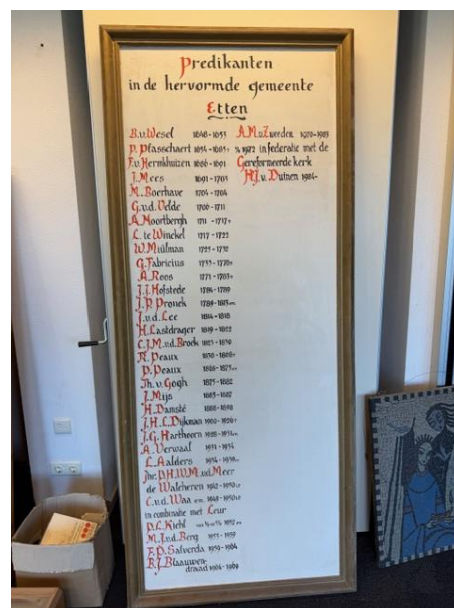 Predikanten
in de hervormde gemeente
Etten
B.v.Wesel 1648-1653
P. Plasschaert 1654-1685+
F.v.Hermkhuizen 1686-1691
J.Mees 1691-1703
M.Boerhave 1704-1704
G.v.d.Velde 1706-1711
A.Moortbergh 1711-1717+
L.te Winckel 1717-1722
W.Muilman 1723-1732
G.Fabricius 1733-1770
A.Roos 1771-1783+
J.J.Hofstede 1784-1789
J.P. Pronck 1789-1813em
J.v.d.Lee 1814-1818
H.Lastdrager 1819-1822
C.J.M.v.d.Broek 1823-1830
R.Peaux
P.Peaux
Th.v.Gogh 1875-1882
J.Mijs 1883-1887
H.Damsté 1888-1898
J.H.L.Dijkman 1900-1926+
J.G.Harthoorn
A.Verwaal 1931-1934
L.Aalders
Jhr.P.H.W.M.v.d.Meer
de Walcheren
C.v.d.Waa em.
in combinatie met Leur
D.L.Kiehl
M.J.v.d.Berg 1953-1959
F.P.Salverda 1959-1964
B.J.Blaauwen-
draad 1964-1969
A.M.v.Zweeden 1970-1983
1972 in federatie met de
Gereformeerde kerk
H.J.v.Duinen 1984-